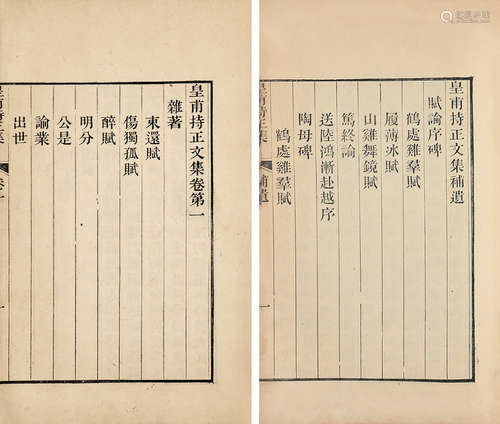 皇甫持正文集卷第一
雜著
東還賦
傷獨孤賦
醉賦
明分
公是
諭業
出世
皇甫持正文集補遺
賦論序碑
鶴處雞羣賦
履薄冰賦
山雞舞鏡賦
篤終論
送陸鴻漸赴越序
陶母碑
鶴處雞羣賦
補遺
一